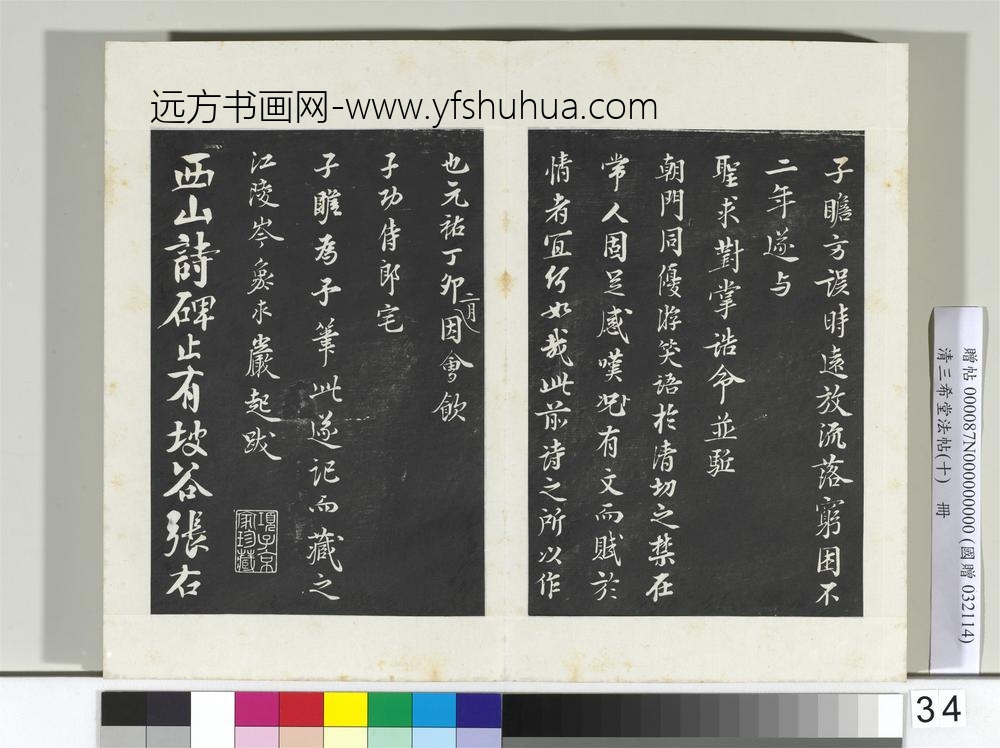 远方书画网-www.yfshuhua.com
子瞻方误時遠放流落窮困不
二年遂与
聖求對掌誥命並驅
朝門同優游笑語於清切之禁在
常人固足感嘆况有文而賦於
情者宜何如哉此前诗之所以作
也元祐丁卯二月因會飲
子功侍郎宅
子瞻为予筆此遂记而藏之
江陵岑象求巖起跋
項子京
家珍藏
西山詩碑止有坡谷張右
贈帖 000087N000000000 (國贈 032114)
清三希堂法帖(十) 冊
34